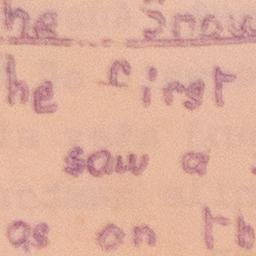 he Snow
he first
saw a
as on th